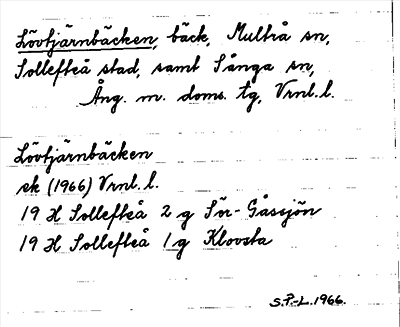 Lövtjärnbäcken, bäck, Multrå sn,
Sollefteå stad, samt Sånga sn,
Ång. m. doms. tg, Vrnl. l.
Lövtjärnbäcken
ek (1966) Vrnl. l.
19 H Sollefteå 2 g Sör-Gåssjön
19 H Sollefteå 1 g Klovsta
S.P.-L. 1966.